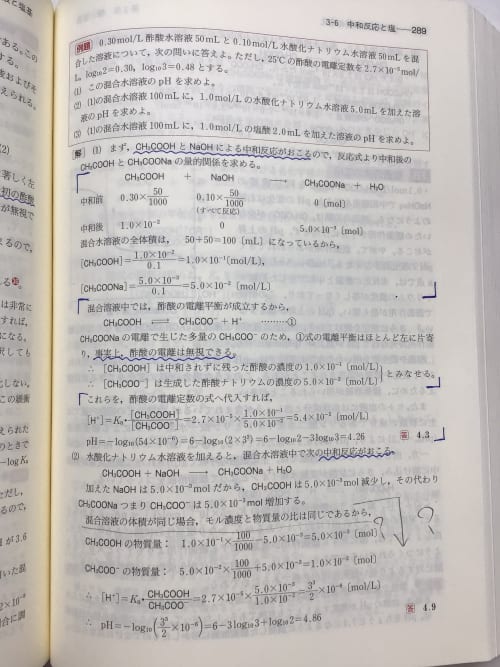 3-6 中和反応と塩 289
例題 0.30mol/L 酢酸水溶液 50mL と 0.10mol/L 水酸化ナトリウム水溶液 50mL を混
合した溶液について,次の問いに答えよ。ただし,25℃の酢酸の電離定数を2.7×10⁻⁵mol/
L。log₁₀2=0.30,log₁₀3=0.48 とする。
(1) この混合水溶液の pH を求めよ。
(2) (1)の混合水溶液 100mL に,1.0mol/L の水酸化ナトリウム水溶液 5.0mL を加えた溶
液の pH を求めよ。
(3) (1)の混合水溶液 100mL に,1.0mol/L の塩酸 2.0mL を加えた溶液の pH を求めよ。
解 (1) まず,CH₃COOH と NaOH による中和反応がおこるので,反応式より中和後の
CH₃COOH と CH₃COONa の量的関係を求める。
CH₃COOH + NaOH ⟶ CH₃COONa + H₂O
中和前 0.30×50/1000 0.10×50/1000 0 (mol)
(すべて反応)
中和後 1.0×10⁻² 0 5.0×10⁻³ (mol)
混合水溶液の全体積は, 50+50=100 〔mL〕になっているから,
[CH₃COOH]=1.0×10⁻²/0.1=1.0×10⁻¹(mol/L),
[CH₃COONa]=5.0×10⁻³/0.1=5.0×10⁻² (mol/L)
混合溶液中では,酢酸の電離平衡が成立するから,
CH₃COOH ⇄ CH₃COO⁻ + H⁺ ………①
CH₃COONa の電離で生じた多量の CH₃COO⁻ のため,①式の電離平衡はほとんど左に片寄
り,事実上,酢酸の電離は無視できる。
∴ [CH₃COOH] は中和されずに残った酢酸の濃度の 1.0×10⁻¹ (mol/L)
∴ [CH₃COO⁻] は生成した酢酸ナトリウムの濃度の 5.0×10⁻² (mol/L) } とみなせる。
これらを,酢酸の電離定数の式へ代入すれば,
[H⁺]=Kₐ・[CH₃COOH]/[CH₃COO⁻]=2.7×10⁻⁵×1.0×10⁻¹/5.0×10⁻²=5.4×10⁻⁵ (mol/L)
pH=−log₁₀(54×10⁻⁶)=6−log₁₀(2×3³)=6−log₁₀2−3log₁₀3=4.26 答 4.3
(2) 水酸化ナトリウム水溶液を加えると,混合水溶液中で次の中和反応がおこる。
CH₃COOH + NaOH ⟶ CH₃COONa + H₂O
加えた NaOH は 5.0×10⁻³mol だから,CH₃COOH は 5.0×10⁻³mol 減少し,その代わり
CH₃COONa つまり CH₃COO⁻ は 5.0×10⁻³mol 増加する。
混合溶液の体積が同じ場合,モル濃度と物質量の比は同じであるから,
? ?
CH₃COOH の物質量: 1.0×10⁻¹×100/1000−5.0×10⁻³=5.0×10⁻³ (mol)
CH₃COO⁻ の物質量: 5.0×10⁻²×100/1000+5.0×10⁻³=1.0×10⁻² (mol)
∴ [H⁺]=Kₐ・CH₃COOH/CH₃COO⁻=2.7×10⁻⁵×5.0×10⁻³/1.0×10⁻²=3³/2×10⁻⁶ (mol/L)
∴ pH=−log₁₀(3³/2×10⁻⁶)=6−3log₁₀3+log₁₀2=4.86 答 4.9